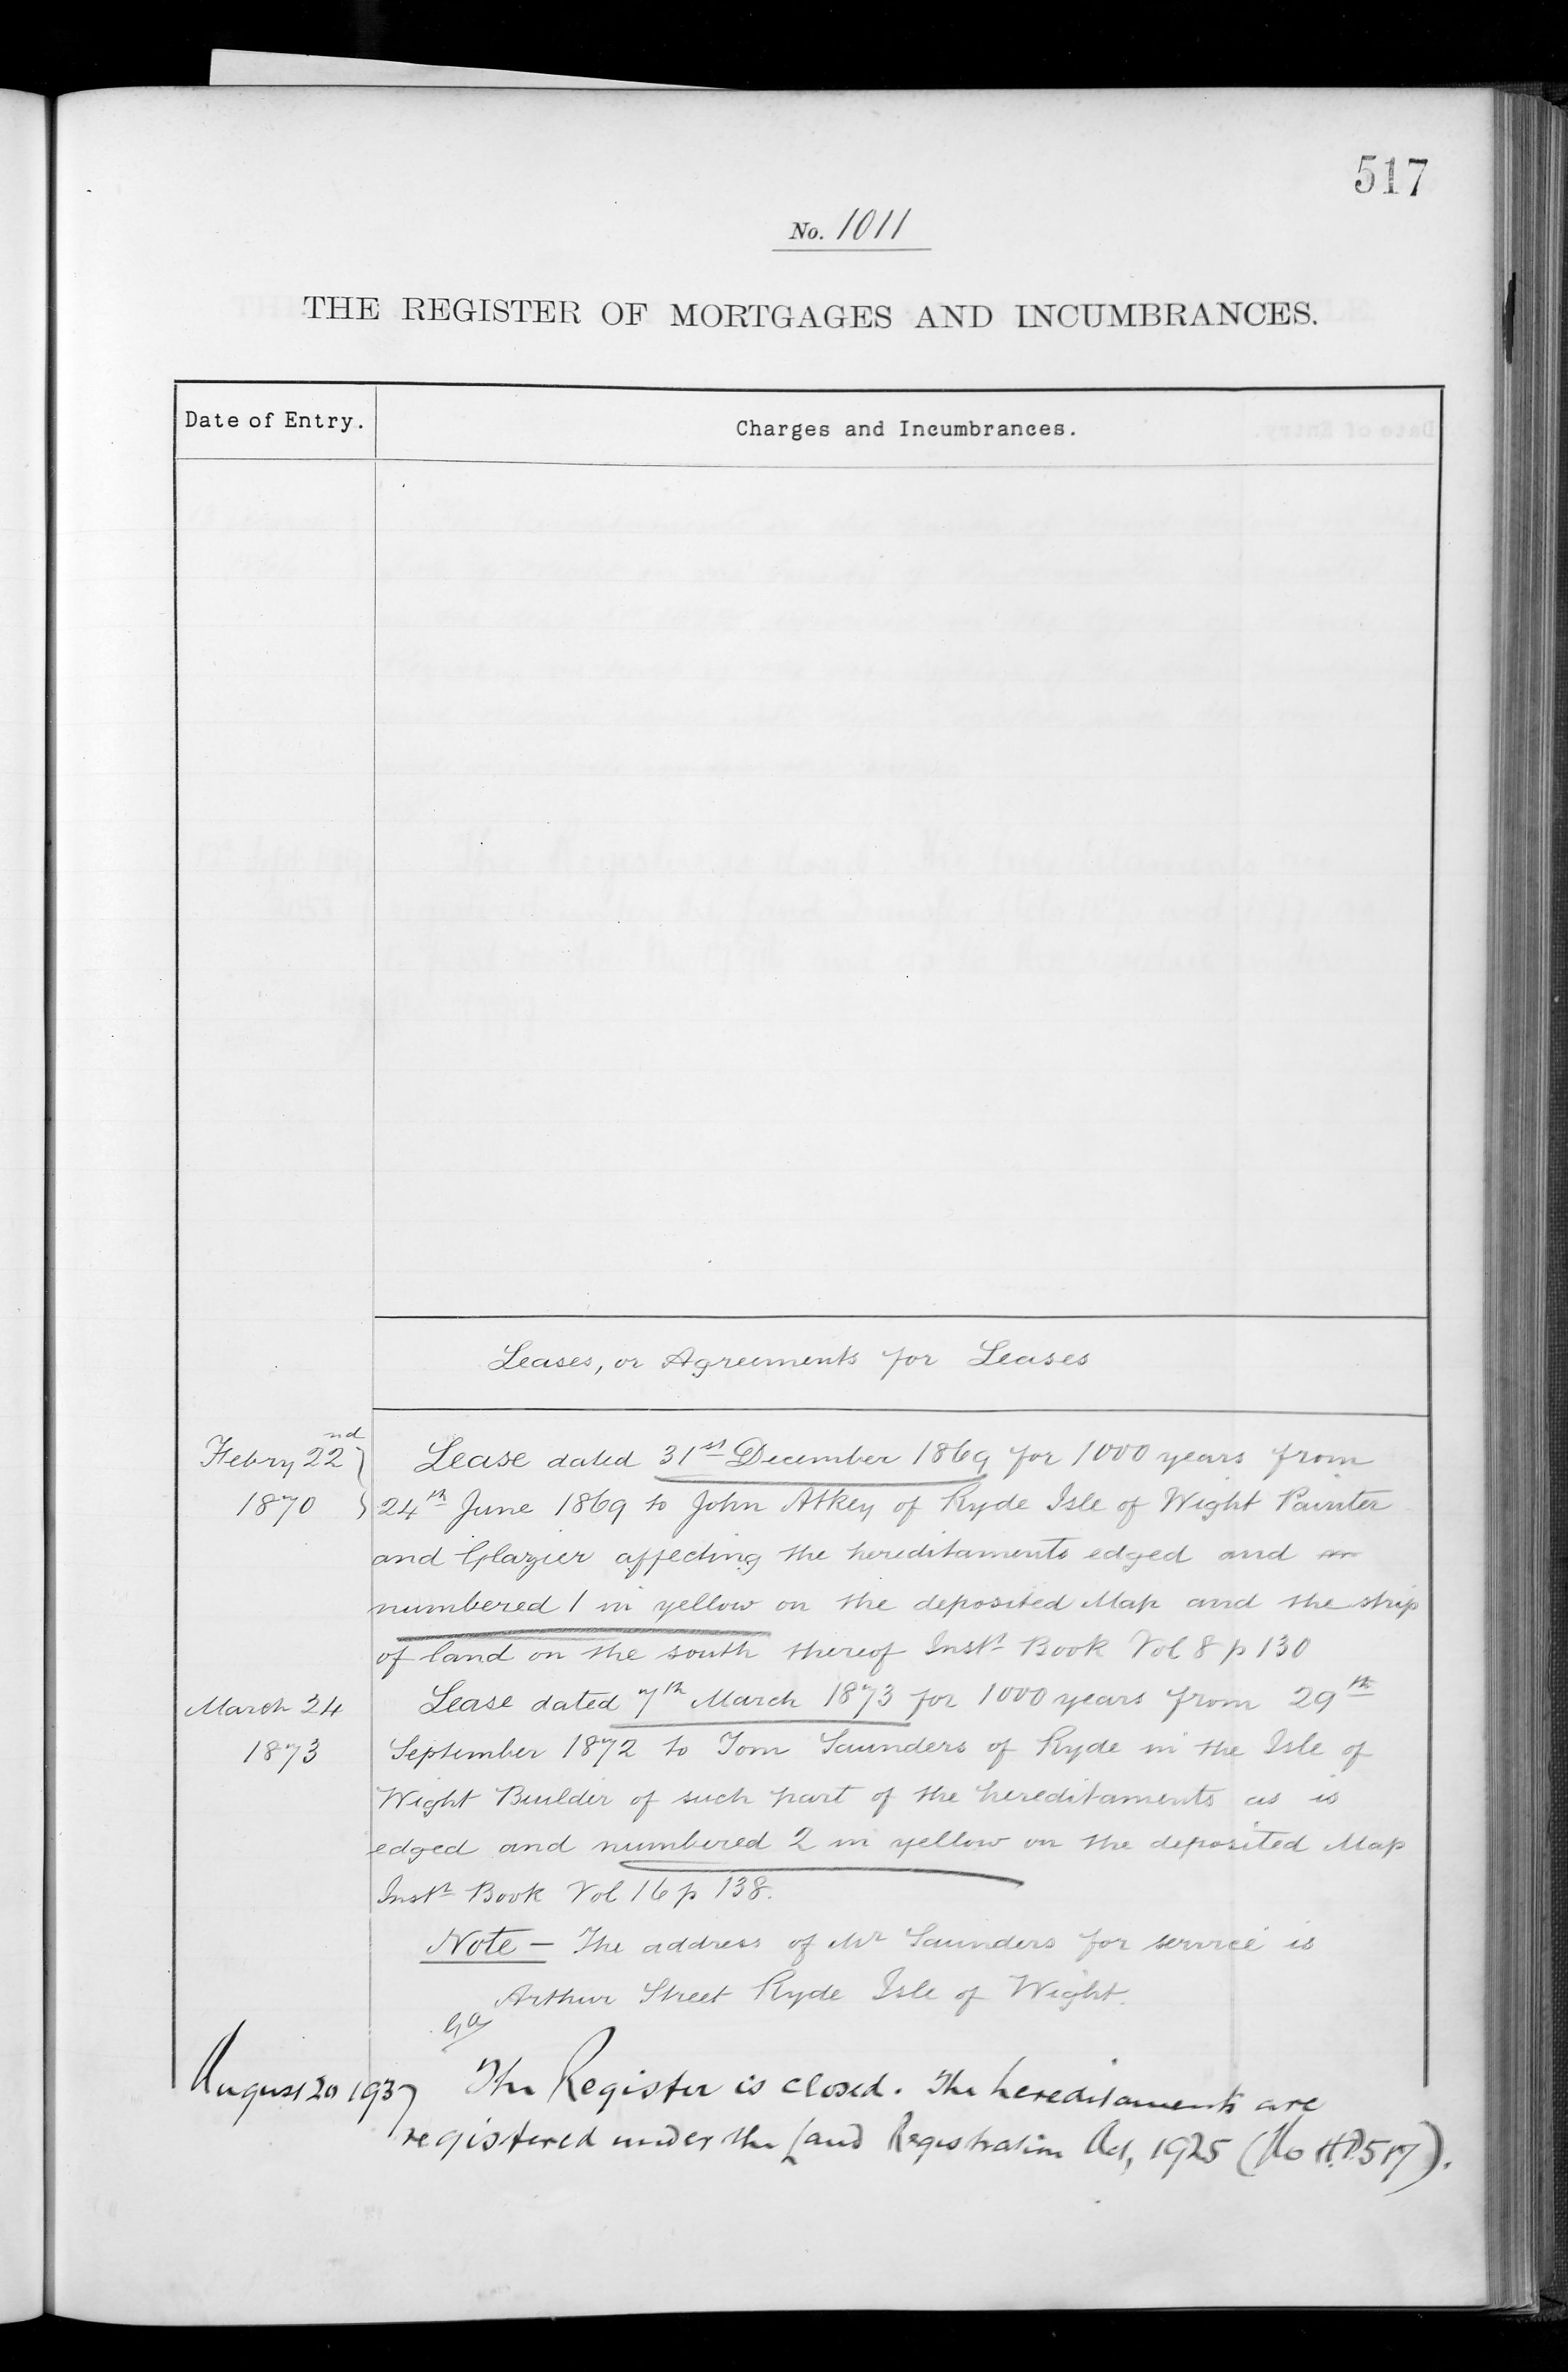 517
No. 1011
THE REGISTER OF MORTGAGES AND INCUMBRANCES.
Date of Entry.
Charges and Incumbrances.
Leases, or Agreements for Leases
Febry 22nd
1870
Lease dated 31st December 1869 for 1000 years from
24th June 1869 to John Atkey of Ryde Isle of Wight Painter
and Glazier affecting the hereditaments edged and
numbered 1 in yellow on the deposited Map and the strip
of land on the south thereof Instt Book Vol 8 p 130
March 24
1873
Lease dated 7th March 1873 for 1000 years from 29th
September 1872 to Tom Saunders of Ryde in the Isle of
Wight Builder of such part of the hereditaments as is
edged and numbered 2 in yellow on the deposited Map
Instt Book Vol 16 p 138.
Note – The address of Mr Saunders for service is
Arthur Street Ryde Isle of Wight.
August 20 1937
The Register is closed. The hereditaments are
registered under the Land Registration Act, 1925 (No H.P.517).